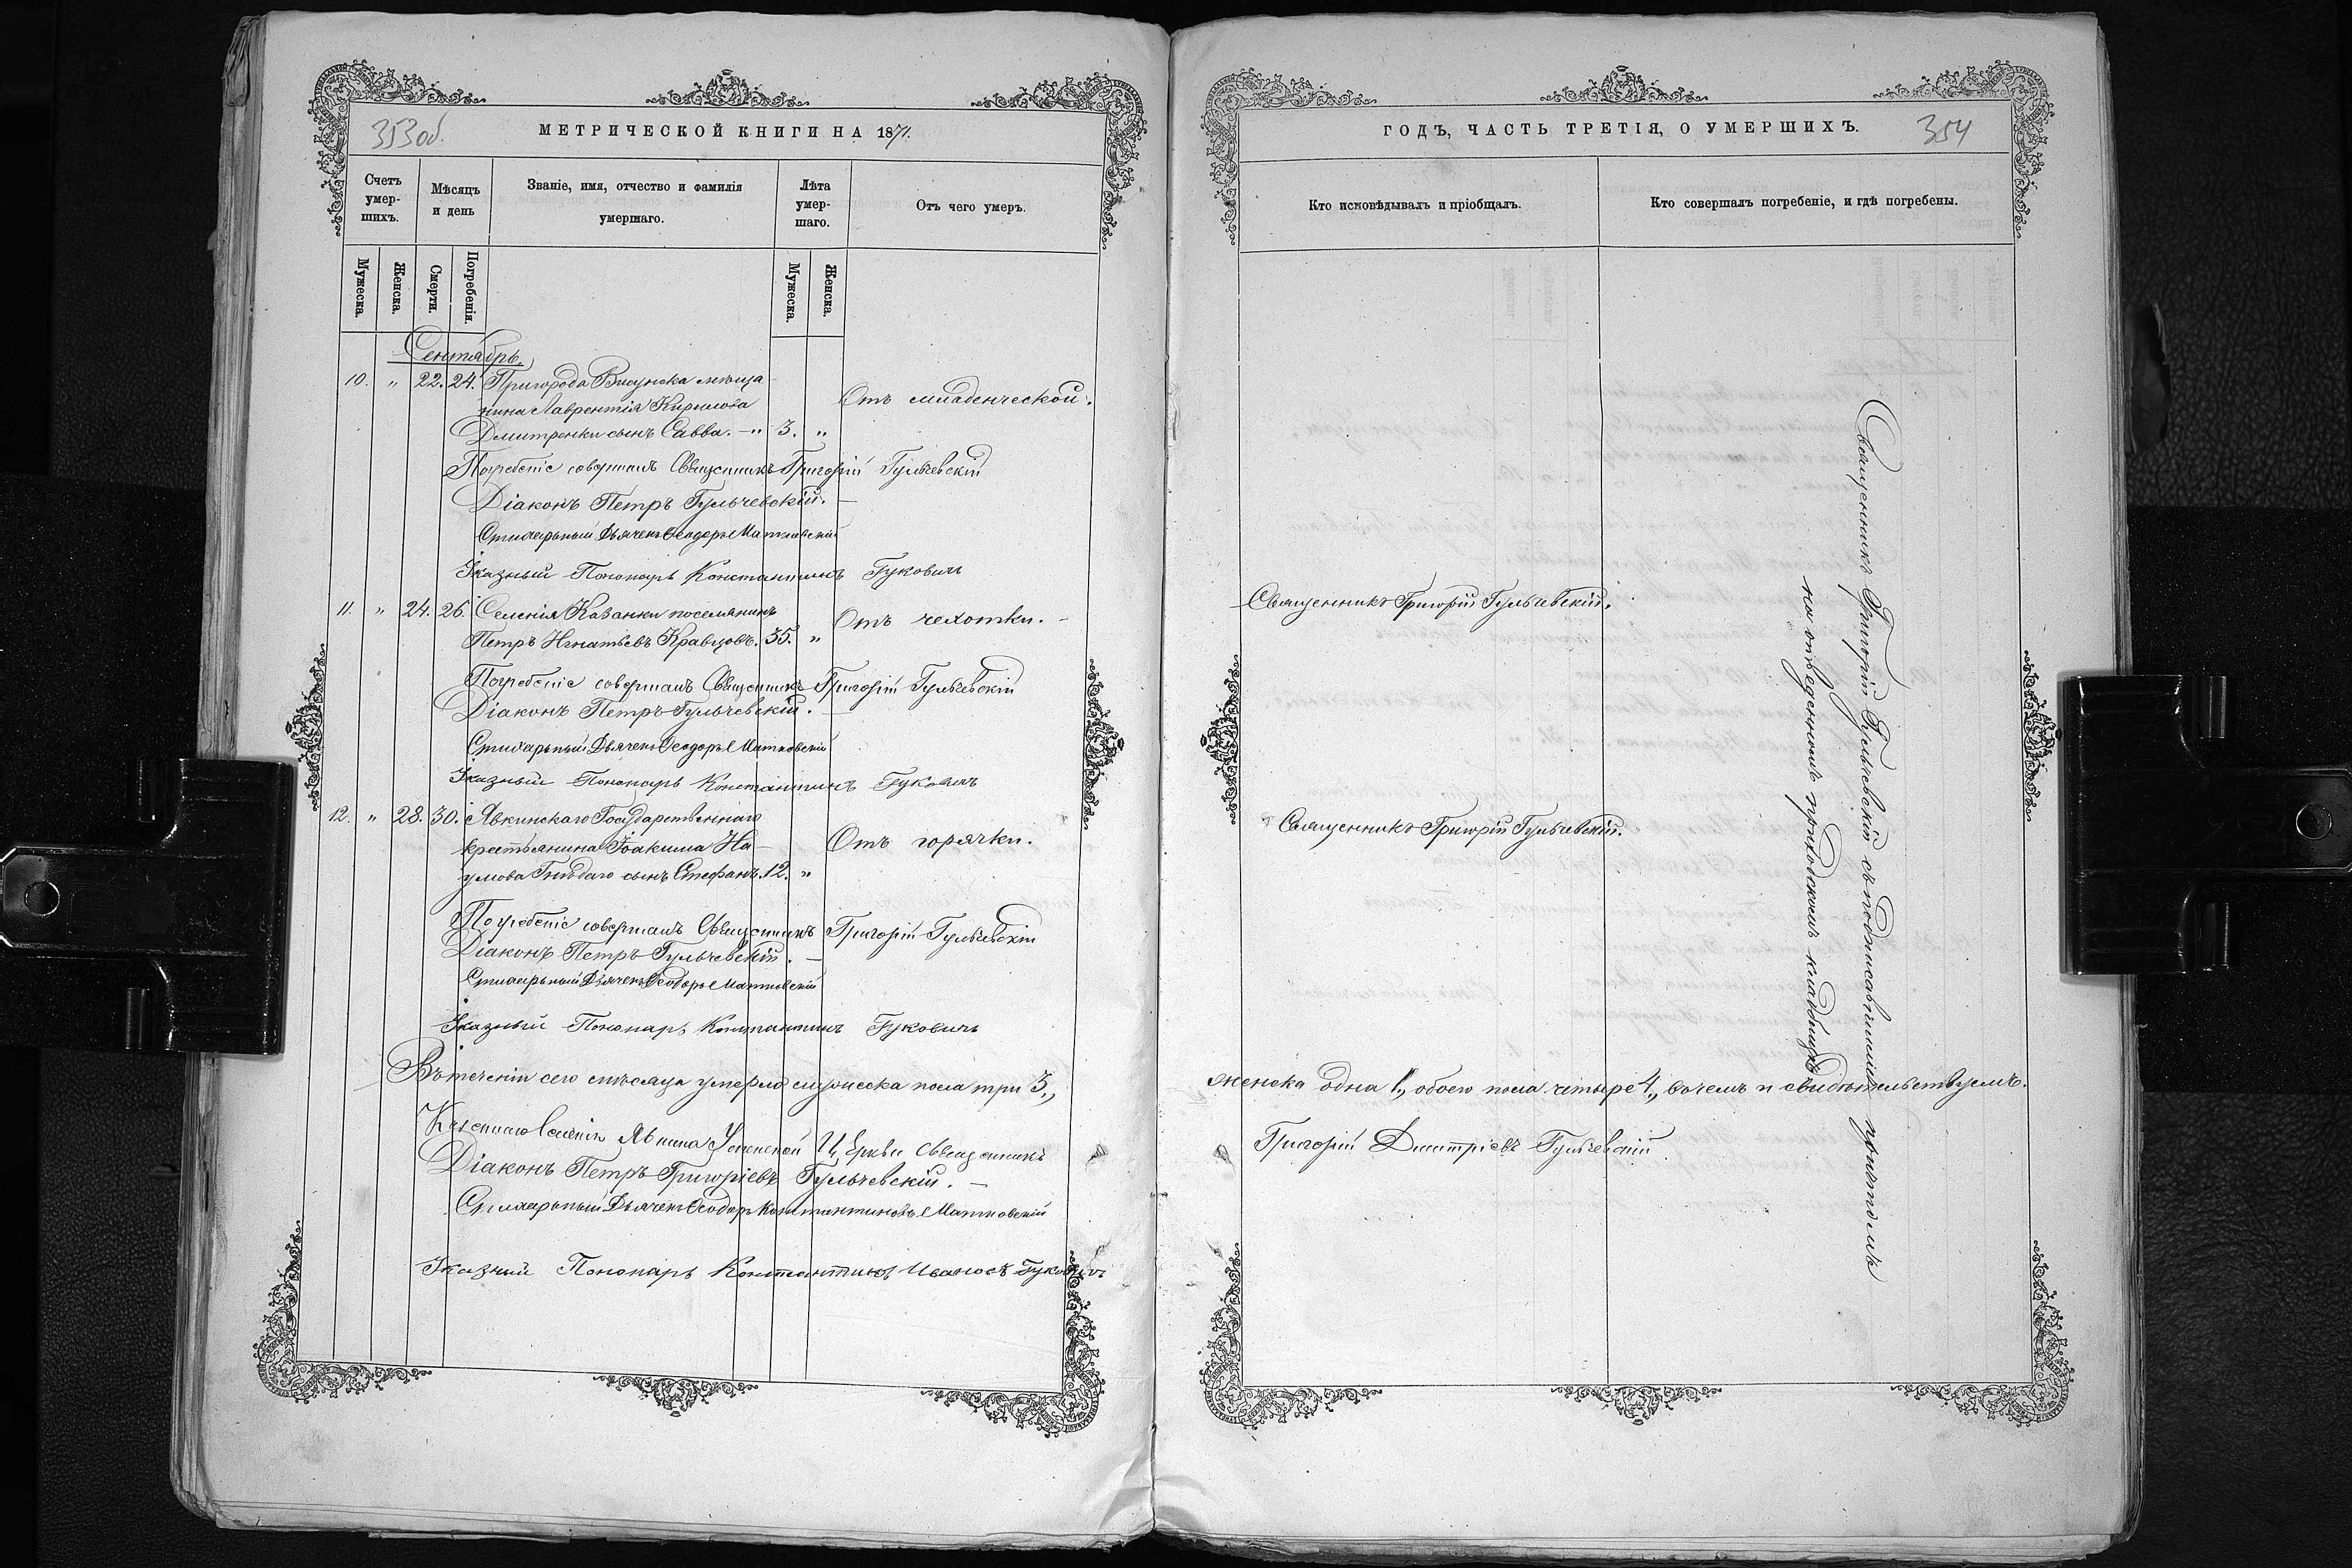 353об.
МЕТРИЧЕСКОЙ КНИГИ НА 1871.
Счетъ умер-шихъ.
Мѣсяцъ и день
Званіе, имя, отчество и фамилія умершаго.
Лѣта умер-шаго.
Отъ чего умеръ.
Мужеска.
Женска.
Смерти.
Погребенія.
Мужеска.
Женска.
Сентябрь.
10. " 22. 24. Пригорода Висунска мѣща-
нина Лаврентія Кирилова Отъ младенческой.
Дмитренки сынъ Савва. — " 3. "
Погребеніе совершалъ Священникъ Григорій Гульчевскій
Діаконъ Петръ Гульчевскій. —
Стихарный Дьячекъ Ѳеодоръ Матковскій
Указный Пономарь Константинъ Гуковичъ
11. " 24. 26. Селенія Казанки поселянинъ Отъ чехотки. —
Петръ Игнатьевъ Кравцовъ. 35. "
Погребеніе совершалъ Священникъ Григорій Гульчевскій
Діаконъ Петръ Гульчевскій. —
Стихарный Дьячекъ Ѳеодоръ Матковскій
Указный Пономарь Константинъ Гуковичъ
12. " 28. 30. Явкинскаго Государственнаго
крестьянина Іоакима На- Отъ горячки.
умова Гнѣдаго сынъ Стефанъ. 12. "
Погребеніе совершалъ Священникъ Григорій Гульчевскій
Діаконъ Петръ Гульчевскій. —
Стихарный Дьячекъ Ѳеодоръ Матковскій
Указный Пономарь Константинъ Гуковичъ
Въ теченіи сего мѣсяца умерло мужеска пола три 3.,
Казеннаго Селенія Явкина Успенской Церкви Священникъ
Діаконъ Петръ Григоріевъ Гульчевскій. —
Стихарный Дьячекъ Ѳеодоръ Константиновъ Матковскій
Указный Пономарь Константинъ Ивановъ Гуковичъ
ГОДЪ, ЧАСТЬ ТРЕТІЯ, О УМЕРШИХЪ.
354
Кто исповѣдывалъ и пріобщалъ.
Кто совершалъ погребеніе, и гдѣ погребены.
Священникъ Григорій Гульчевскій.
Священникъ Григорій Гульчевскій.
Священникъ Григорій Гульчевскій съ подписавшимся причтомъ
на отведенномъ приходскомъ кладбищѣ
женска одна 1., обоего пола четыре 4., в чемъ и свидѣтельствуемъ.
Григорій Дмитріевъ Гульчевскій